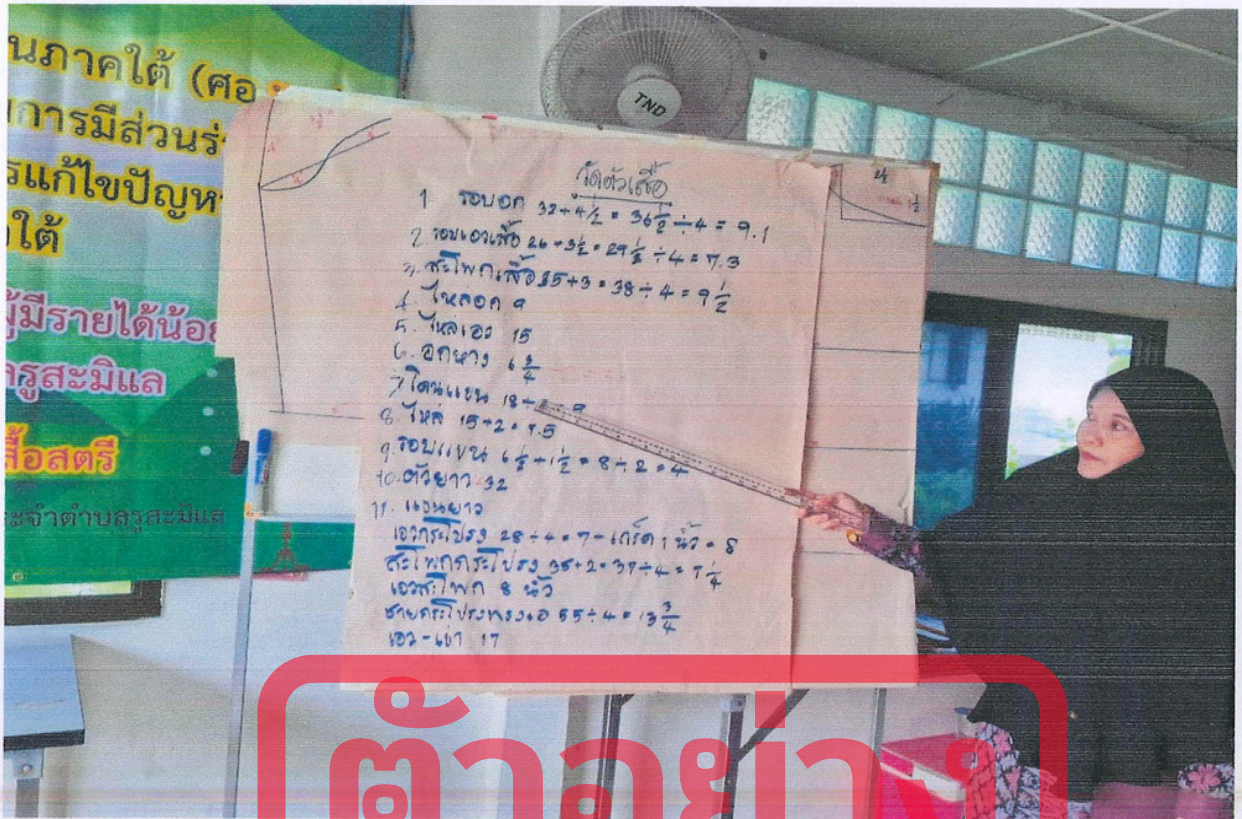 นภาคใต้ (ศอ
การมีส่วนร่
รแก้ไขปัญห
ใต้
ผู้มีรายได้น้อย
ครูสะมิแล
สื้อสตรี
ะจำตำบลรูสะมิแล
TND
วัดตัวเสื้อ
1 รอบอก 32+4 1/2 = 36 1/2 ÷ 4 = 9.1
2. รอบเอวเสื้อ 26+3 1/2 = 29 1/2 ÷ 4 = 7.3
3. สะโพกเสื้อ 35+3 = 38 ÷ 4 = 9 1/2
4. ไหล่อก 9
5. ไหล่เอว 15
6. อกห่าง 6 3/4
7. โคนแขน 18 ÷
8. ไหล่ 15÷2 = 7.5
9. รอบแขน 6 1/2 + 1 1/2 = 8 ÷ 2 = 4
10. ตัวยาว 32
11. แขนยาว
เอวกระโปรง 28 ÷ 4 = 7 - เกร็ด 1 นิ้ว = 8
สะโพกกระโปรง 35+2 = 37 ÷ 4 = 9 1/4
เอวสะโพก 8 นิ้ว
ชายกระโปรงทรงเอ 55 ÷ 4 = 13 3/4
เอว - เข่า 17
ตัวอย่าง